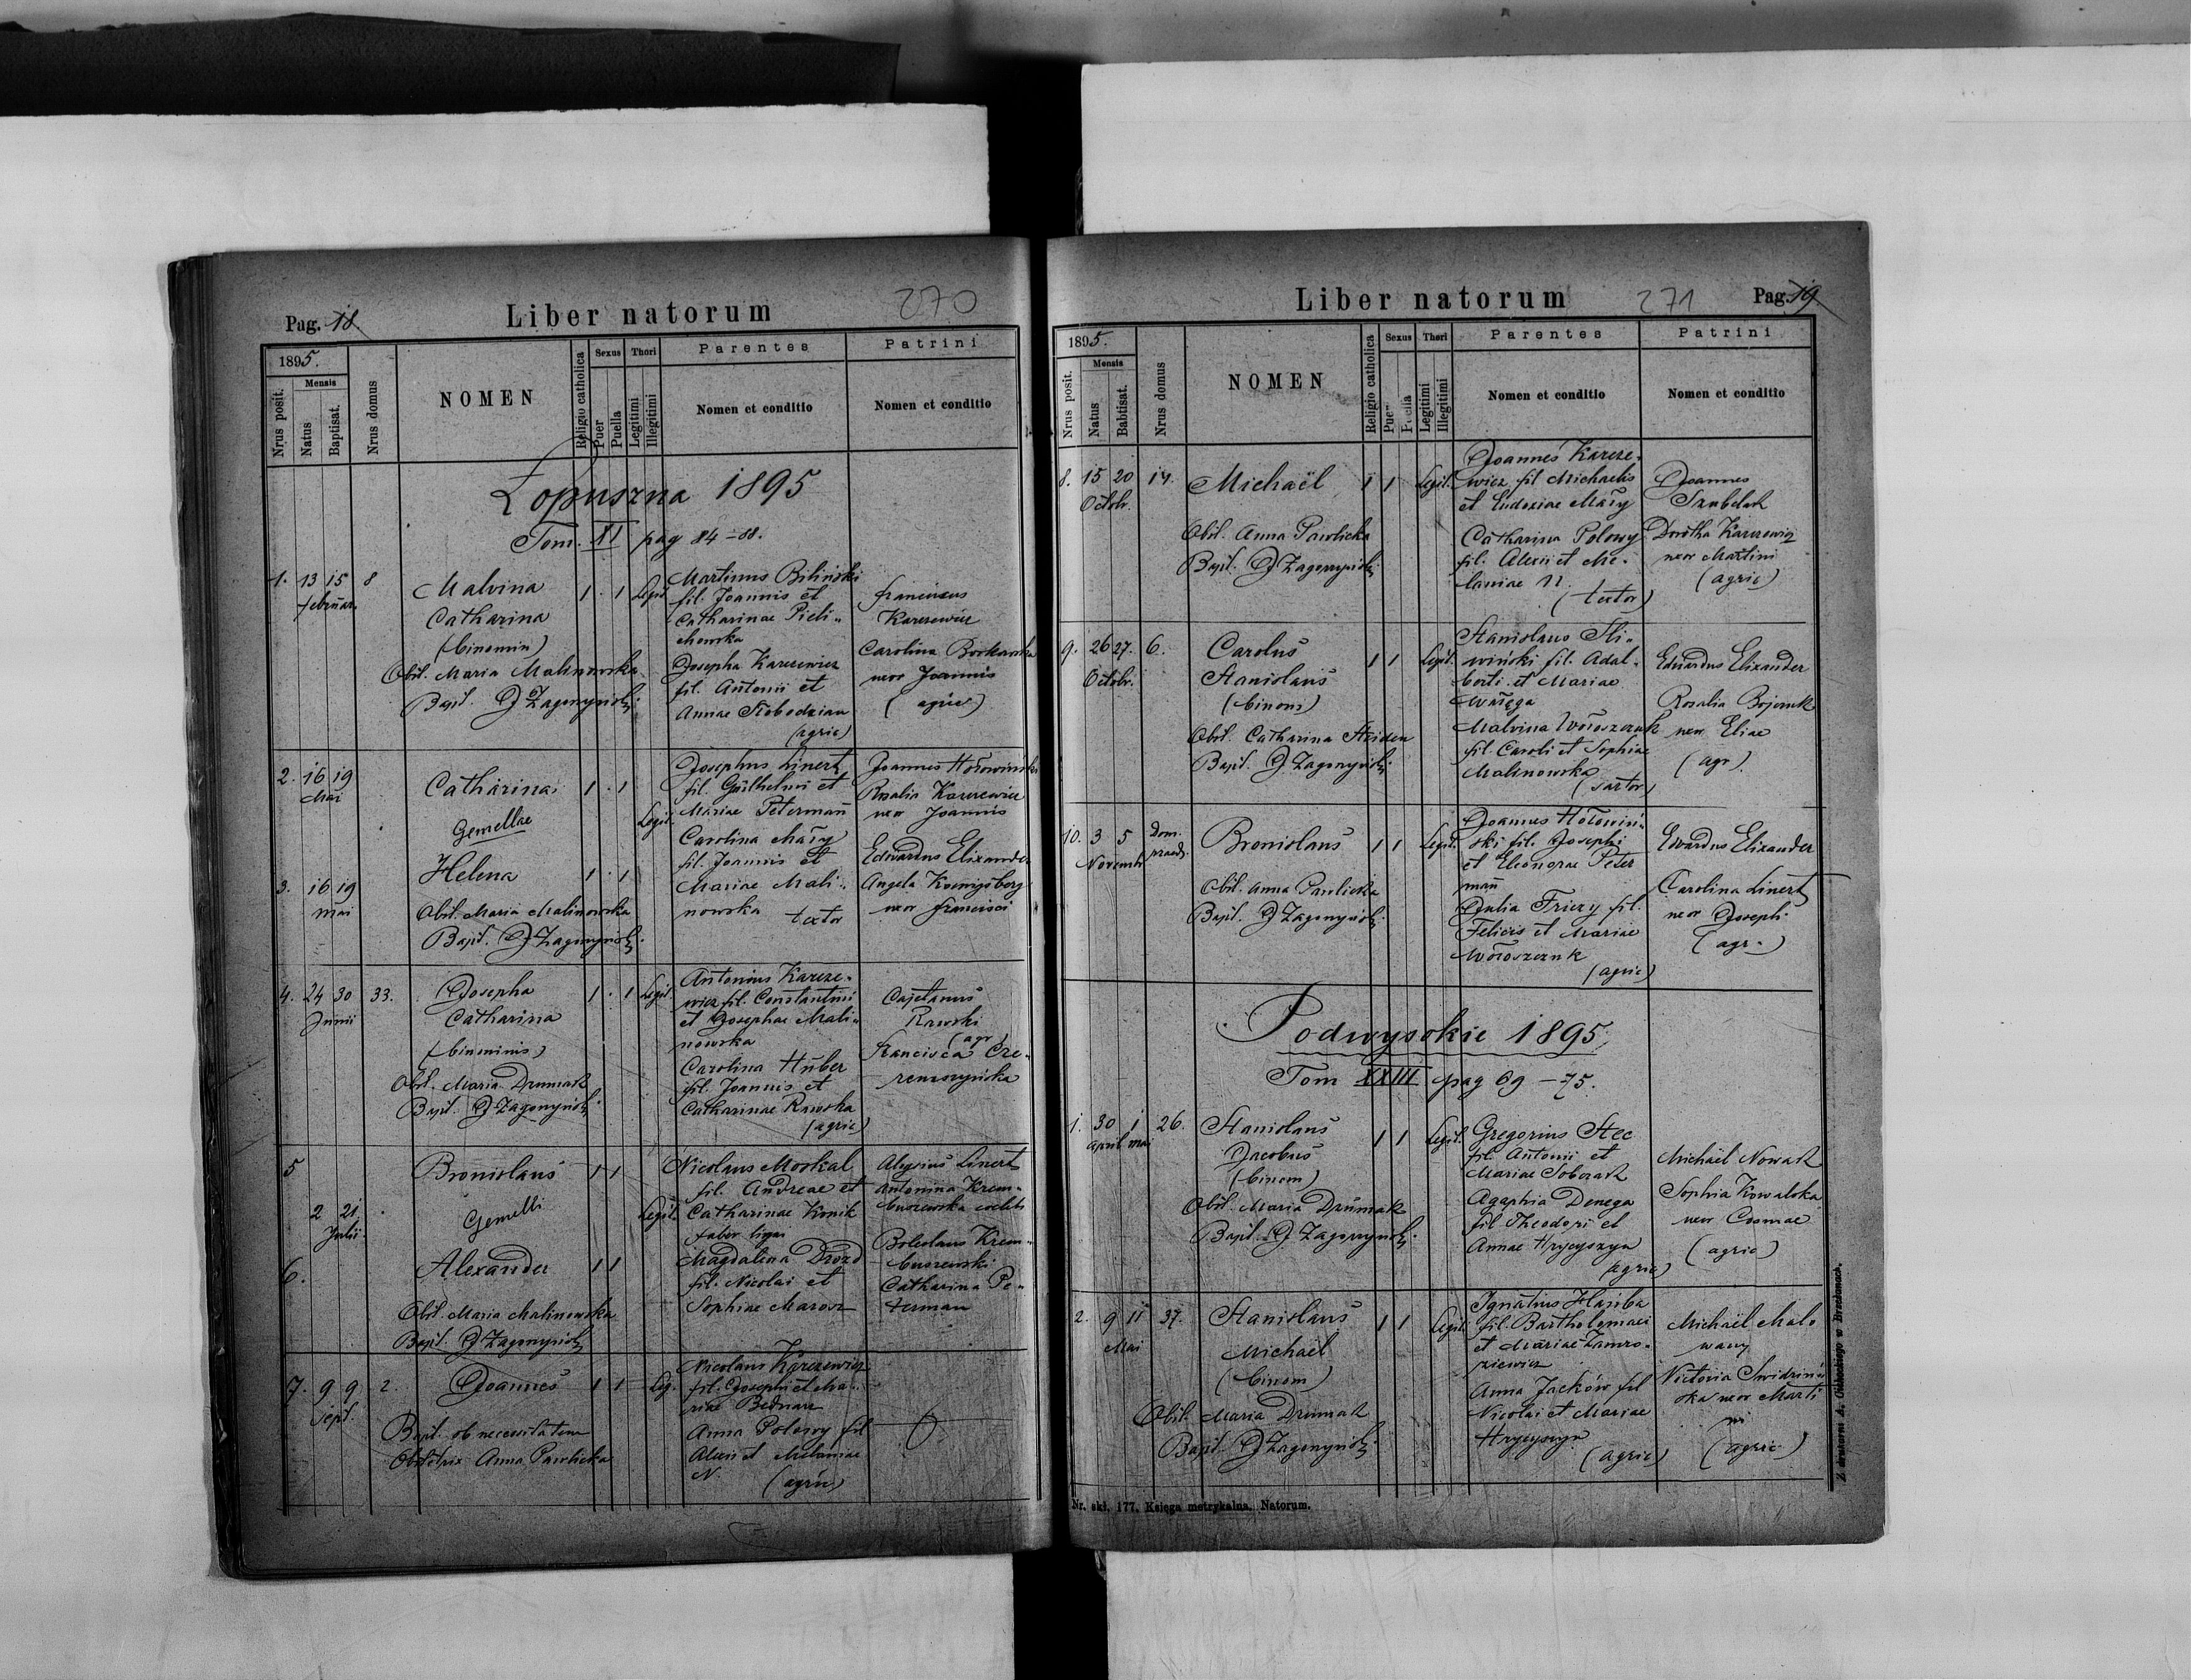 Pag. 18
Liber natorum
270
1895.
Nrus posit.
Mensis
Natus
Baptisat.
Nrus domus
NOMEN
Religio catholica
Sexus
Puer
Puella
Thori
Legitimi
Illegitimi
Parentes
Nomen et conditio
Patrini
Nomen et conditio
Łopuszna 1895
Tom. XI pag 84-88.
1. 13 15 8
februar.
Malvina
Catharina
(binomin)
Obst. Maria Malinowska
Bapt.
1 1 Legit.
Martinus Biliński
fil. Joannis et
Catharinae Pieli-
chowska
Josepha Karczewicz
fil. Antonii et
Annae Słobodzian
(agric)
franciscus
Karczewicz
Carolina
uxor Joannis
(agric)
2. 16 19
Mai
Catharina
Gemellae
1 1
Legit.
Josephus Linert
fil. Guilhelmi et
Mariae Petermann
Carolina Mały
fil. Joannis et
Mariae Mali-
nowska textor
Joannes Hołowinski
Rosalia Karczewicz
uxor Joannis
3. 16 19
mai
Helena
1 1
Obst. Maria Malinowska
Bapt.
Edwardus Elixander
Angela Koenigsberg
uxor francisci
4. 24 30 33.
Junii
Josepha
Catharina
(binominis)
Obst. Maria Drumak
Bapt.
1 1 Legit.
Antonius Karcze-
wicz fil. Constantini
et Josephae Mali-
nowska
Carolina Huber
fil. Joannis et
Catharinae Rawska
(agric)
Cajetanus
Rawski
(agr)
francisca Cze-
remszyńska
5
2 21
Julii
Bronislaus 1 1
Gemelli
Legit.
Nicolaus Moskal
fil. Andreae et
Catharinae Konik
faber lign.
Magdalina Drozd
fil. Nicolai et
Sophiae Marosz
Aloysius Linert
Antonina Krem-
buszewska coelebs
6.
Alexander 1 1
Obst. Maria Malinowska
Bapt.
Boleslaus Krem-
buszewski
Catharina Pe-
terman
7. 9 9 2.
Sept.
Joannes 1 1 Leg.
Bapt. ob necessitatem
Obstetrix Anna Pawlicka
Nicolaus Karczewicz
fil. Josephi et Ma-
riae Bednarz
Anna Połowy fil
Alexii et Melaniae
N. (agric)
Liber natorum
271
Pag. 19
1895.
Nrus posit.
Mensis
Natus
Babtisat.
Nrus domus
NOMEN
Religio catholica
Sexus
Thori
Legitimi
Illegitimi
Parentes
Nomen et conditio
Patrini
Nomen et conditio
8. 15 20 14.
Octobr.
Michaël 1 1 Legit.
Obst. Anna Pawlicka
Bapt.
Joannes Karcze-
wicz fil Michaelis
et Eudoxiae Mały
Catharina Połowy
fil. Alexii et Me-
laniae N.
(textor)
Joannes
Dorotha Karczewicz
uxor Martini
(agric)
9. 26 27. 6.
Octobr.
Carolus
Stanislaus
(binom)
1 1 Legit.
Obst. Catharina
Bapt.
Stanislaus Śli-
wiński fil. Adal-
berti et Mariae
Waręga
Malvina Woroszczuk
fil. Caroli et Sophiae
Malinowska
(sartor)
Edvardus Elixander
Rosalia Bojczuk
uxor Eliae
(agr)
10. 3 5 Dom. praed.
Novembr.
Bronislaus 1 1 Legit.
Obst. Anna Pawlicka
Bapt.
Joannes Hołowiń-
ski fil. Josephi
et Eleonorae Peter
mann
Julia Friczy fil.
Felicis et Mariae
Woroszczuk
(agric)
Edvardus Elixander
Carolina Linert
uxor Josephi
(agr.)
Podwysokie 1895.
Tom XXIII pag 69-75.
1. 30 1 26.
April mai
Stanislaus
Jacobus
(binom)
1 1 Legit.
Obst. Maria Drumak
Bapt.
Gregorius Stec
fil. Antonii et
Mariae Soberak
Agaphia Denega
fil Theodori et
Annae Hrycyszyn
(agric)
Michaël Nowak
Sophia Kowalska
uxor Cosmae
(agric)
2. 9 11 37.
Mai
Stanislaus
Michaël
(binom)
1 1 Legit.
Obst. Maria Drumak
Bapt.
Ignatius Hasiba
fil. Bartholomaei
et Mariae
Anna Jacków fil
Nicolai et Mariae
Hrycyszyn
(agric)
Michaël Malo
wany
Victoria Swidziń
ska uxor Marti
ni
(agric)
Nr. skł. 177. Księga metrykalna. Natorum.